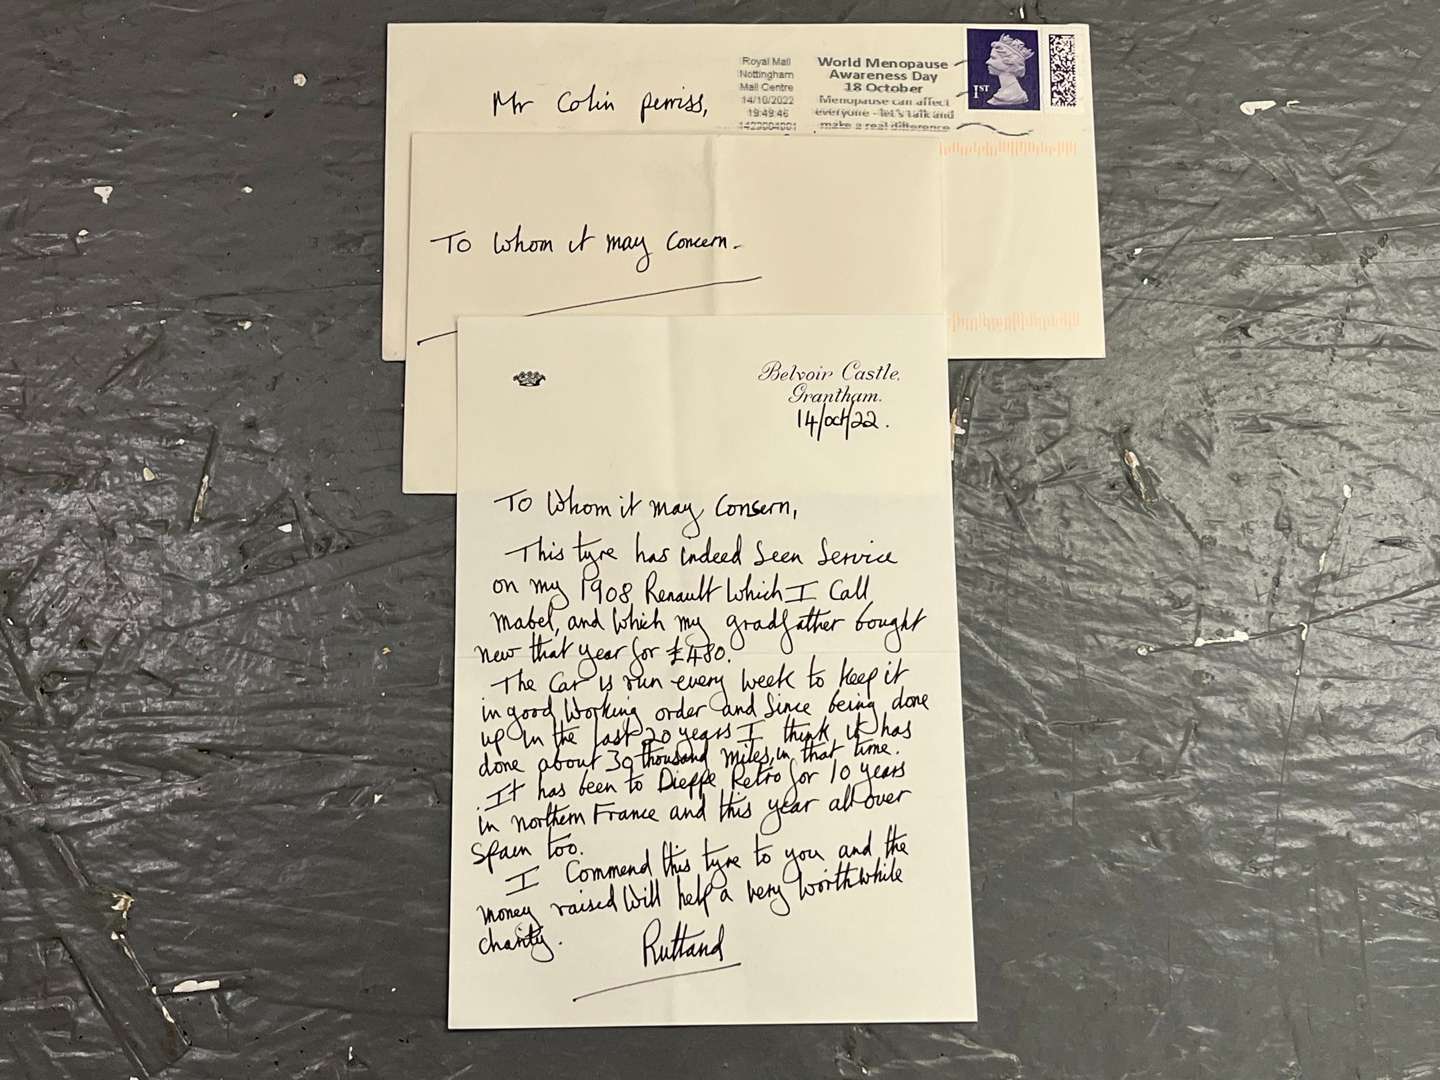 Royal Mail
Nottingham
Mail Centre
14/10/2022
19:49:46
1423004001
World Menopause
Awareness Day
18 October
Menopause can affect
everyone - let's talk and
make a real difference
1ST
Mr Colin perriss,
To Whom it may Concern-
Belvoir Castle,
Grantham.
14/oct/22.
To Whom it may Consern,
This tyre has indeed Seen Service
on my 1908 Renault Which I Call
Mabel, and Which my gradfather bought
new that year for £480.
The Car is run every Week to keep it
in good Working order and Since being done
up in the last 20 years I think it has
done about 30 thousand miles, in that time.
. It has been to Dieppe Retro for 10 years
in northern France and this year all over
Spain too.
I Commend this tyre to you and the
money raised Will help a very Worthwhile
charity.
Rutland